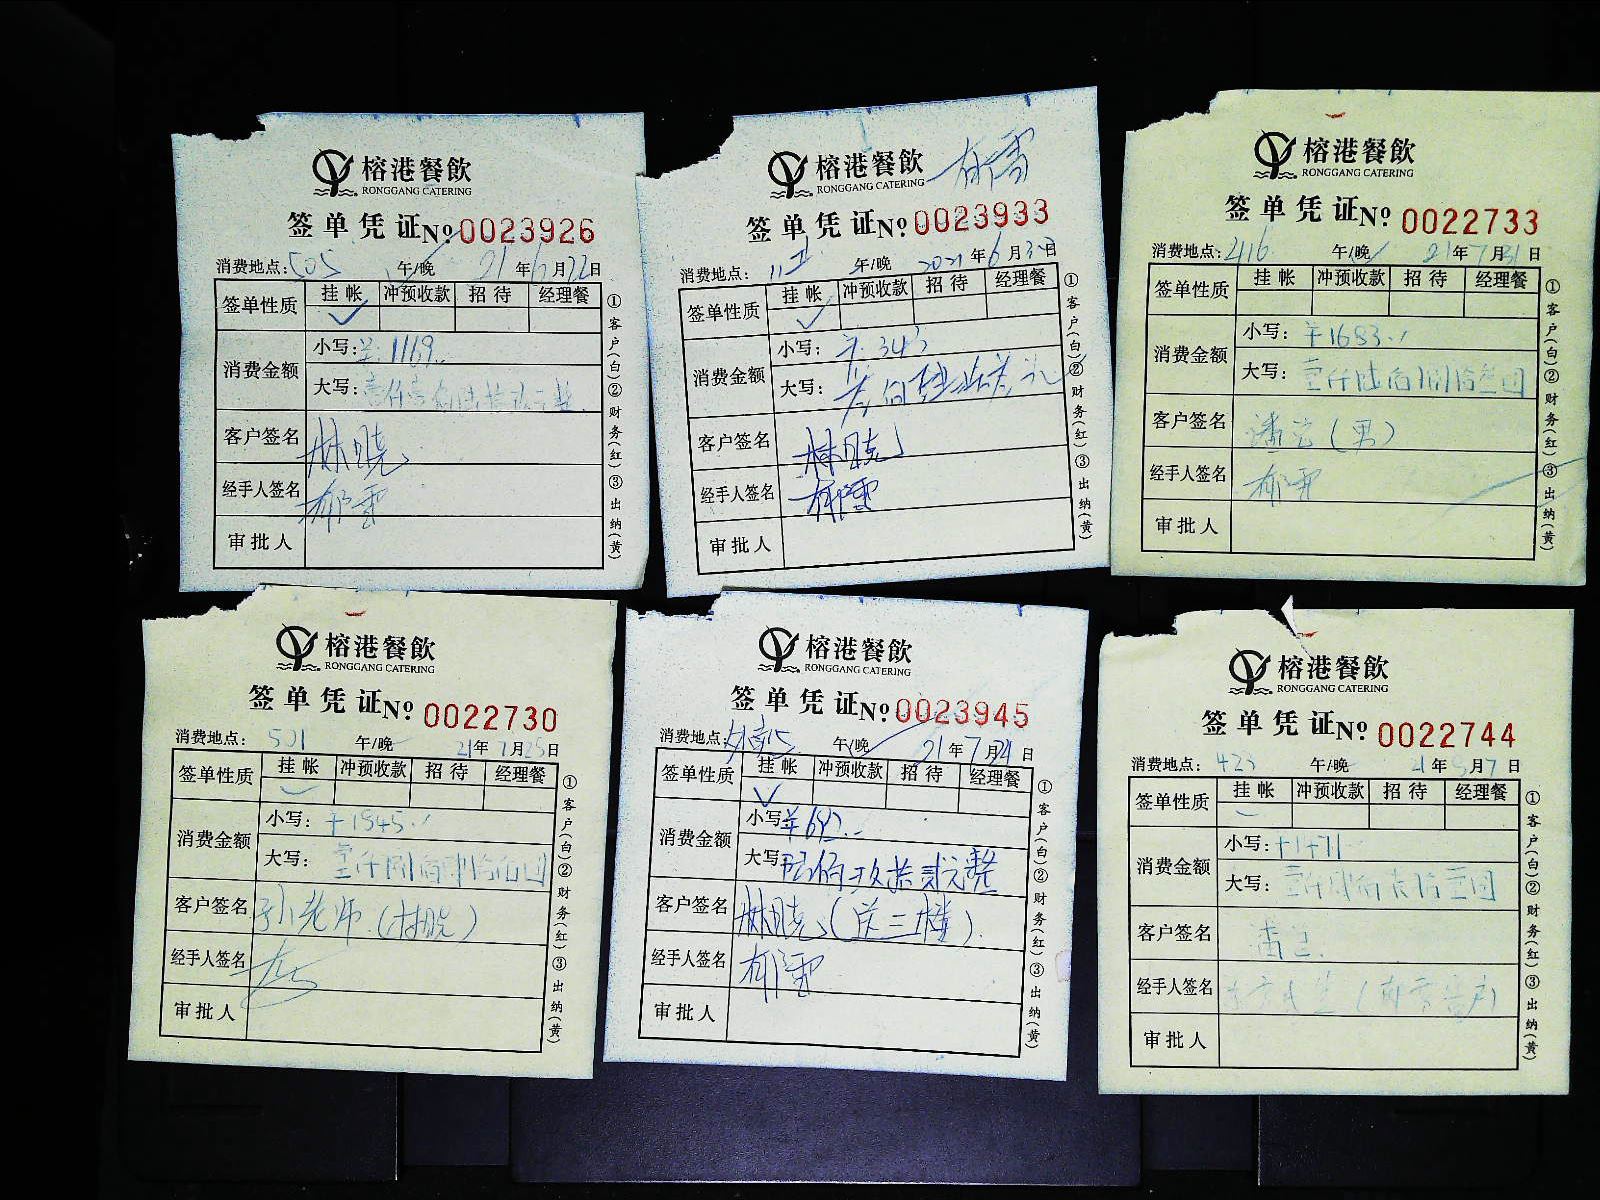 榕港餐飲
RONGGANG CATERING
签单凭证№0023926
消费地点:505 午/晚 21年6月22日
签单性质 挂帐 冲预收款 招待 经理餐
消费金额 小写:¥:1169..
大写:壹仟壹佰陆拾玖元整
客户签名 林晓
经手人签名 郁雪
审批人
①客户(白)②财务(红)③出纳(黄)
榕港餐飲
RONGGANG CATERING
郁雪
签单凭证№0023933
消费地点: 午/晚 2021年6月30日
签单性质 挂帐 冲预收款 招待 经理餐
消费金额 小写:¥:343
大写:
客户签名 林晓
经手人签名 郁雪
审批人
①客户(白)②财务(红)③出纳(黄)
榕港餐飲
RONGGANG CATERING
签单凭证№0022733
消费地点:2116 午/晚 21年7月31日
签单性质 挂帐 冲预收款 招待 经理餐
消费金额 小写:¥1683..
大写:壹仟陆佰捌拾叁圆
客户签名 潘总(男)
经手人签名 郁雪
审批人
①客户(白)②财务(红)③出纳(黄)
榕港餐飲
RONGGANG CATERING
签单凭证№0022730
消费地点:501 午/晚 21年7月25日
签单性质 挂帐 冲预收款 招待 经理餐
消费金额 小写:¥1845..
大写:壹仟捌佰肆拾伍圆
客户签名 孙老师(林晓)
经手人签名
审批人
①客户(白)②财务(红)③出纳(黄)
榕港餐飲
RONGGANG CATERING
签单凭证№0023945
消费地点: 午/晚 21年7月24日
签单性质 挂帐 冲预收款 招待 经理餐
消费金额 小写:¥692..
大写:陆佰玖拾贰元整
客户签名 林晓(送三楼).
经手人签名 郁雪
审批人
①客户(白)②财务(红)③出纳(黄)
榕港餐飲
RONGGANG CATERING
签单凭证№0022744
消费地点:423 午/晚 21年8月7日
签单性质 挂帐 冲预收款 招待 经理餐
消费金额 小写:¥1471
大写:壹仟肆佰柒拾壹圆
客户签名 潘总
经手人签名
审批人
①客户(白)②财务(红)③出纳(黄)